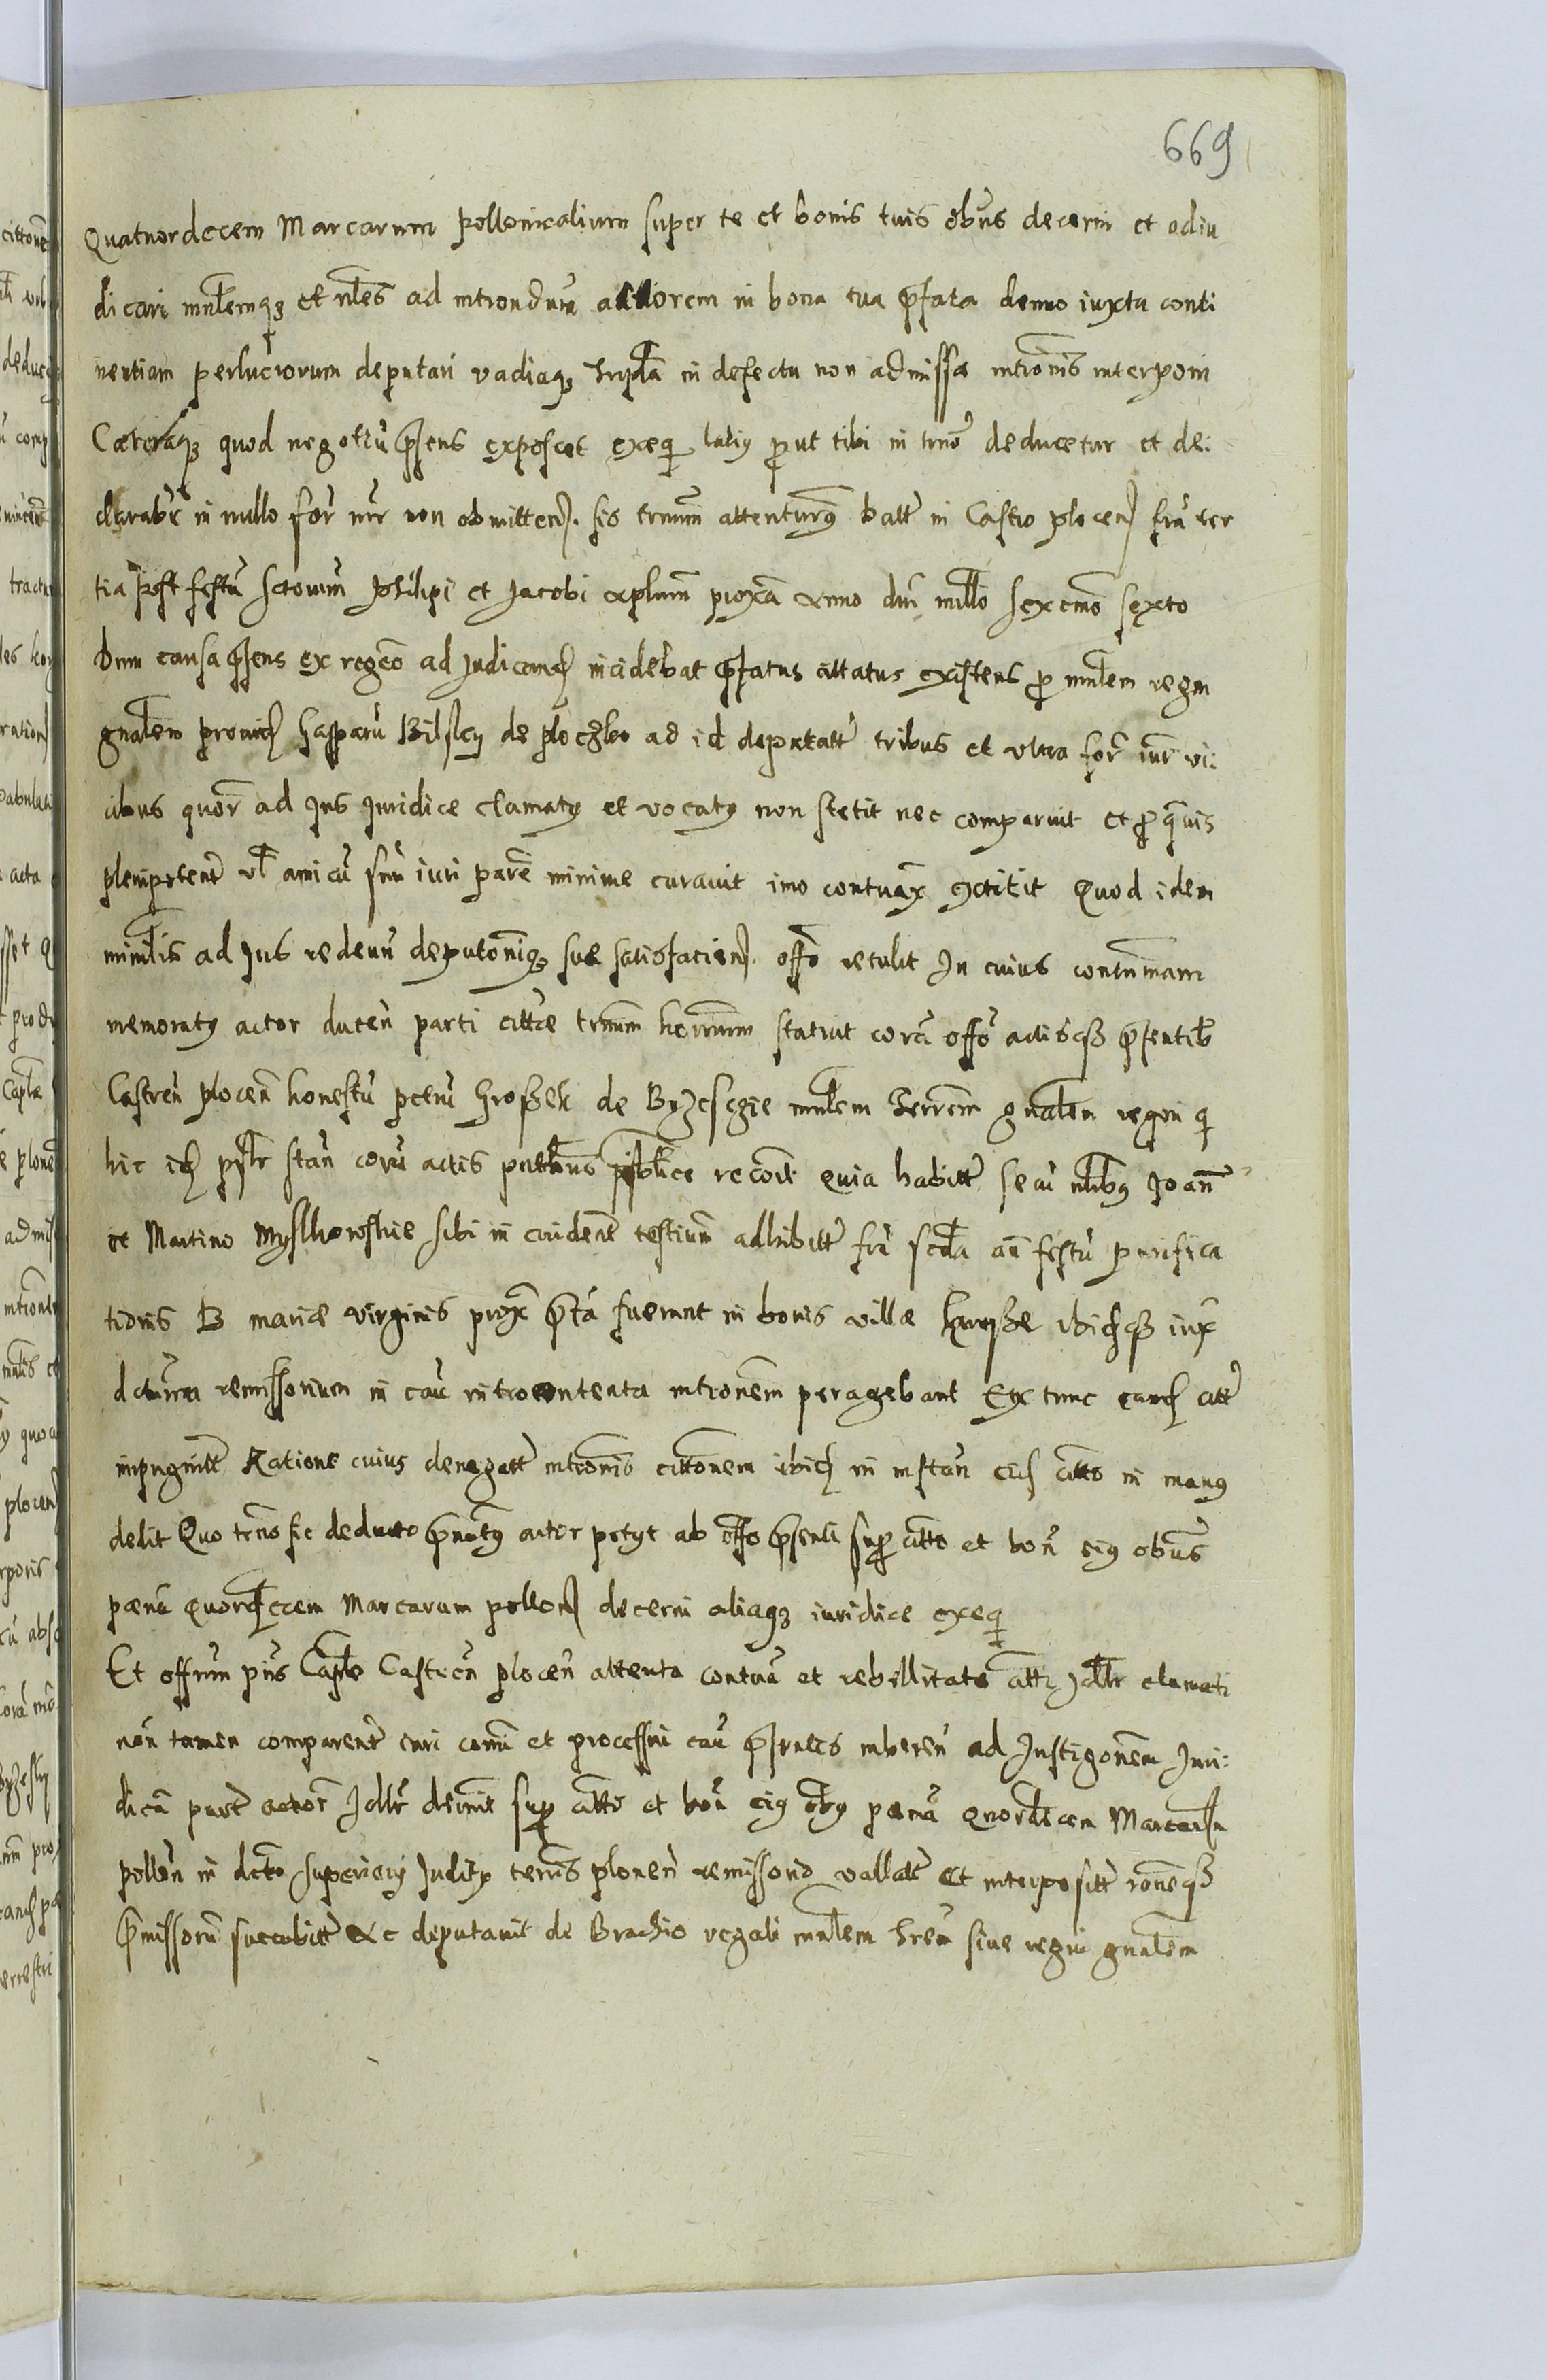 669
Quatuordecem Marcarum pollonicalium super te et bonis tuis obus decerni et adiu
dicari mnlemq3 et nles ad introndum actorem in bona tua pfata denuo iuxta conti
nentiam perlucrorum deputari vadiaq3 tripla in defectu non admissæ intronis interponi
Cæteraq3 quod negotiu psens exposcet exeqi latiy put tibi in trno deducetur et de:
clarabr in nullo for iur non obmitten. sis trnum attenturg batt in Castro plocen fria ter
tia post festu sctorum Philipi et Jacobi aplum proxa Anno dni millo sexcmo sexto
Dum causa psens ex regeo ad judicand incidebat pfatus cittatus existens p mnlem regni
gnalem provid Gasparu Bilsky de plo ad id deputatt tribus et vltra for iur vi:
cibus quor ad Jus Juridice clamaty et vocaty non stetit nec comparuit et p qvis
plenipotent vl amicu suu iuri pare minime curavit imo contuax extitit Quod idem
minlis ad Jus redeun deputoniq3 suæ satisfacien. offo retulit In cuius contumam
memoraty actor ducen parti cittæ trnum hornum statuit cora offo actisq3 psentib
Castren plocen honestu petru Groszek de mnlem Terrem gnalem regni qi
hic id pslr stan cora actis publice recoit quia habitt secu nlibg Joann
et Martino sibi in eviden testium adhibitt fri scda an festu purifica
tionis B mariæ virginis prox pta fuerunt in bonis villæ ibidq3 iux
dctum remissorium in cau introcontenta intronem peragebant Ex tunc eand att
inpugnitt Ratione cuius denegatt intronis cittonem ibid in instan eid atto in mang
dedit Quo trno sic deducto pnotg actor petyt ab offo psenti sup atto et bon eig obus
pæna quordecem Marcarum pollon decerni aliaq3 iuridice exeqi
Et offium pns Caple Castren plocen attenta contua et rebillitate atti Jdlr clamati
non tamen comparent iuri comi et processui cau psentis inheren ad Instigonem Juri:
dica part actor Jdlr decrevit sup atto et bon eig obg pæna quordecem Marcarum
pollon in dcto superiorj Judity terris plocen remissorio vallatt et interpositt ronesq3
pmissoru succubitt &c deputavit de Brachio regali mnlem Trem sive regni gnalem